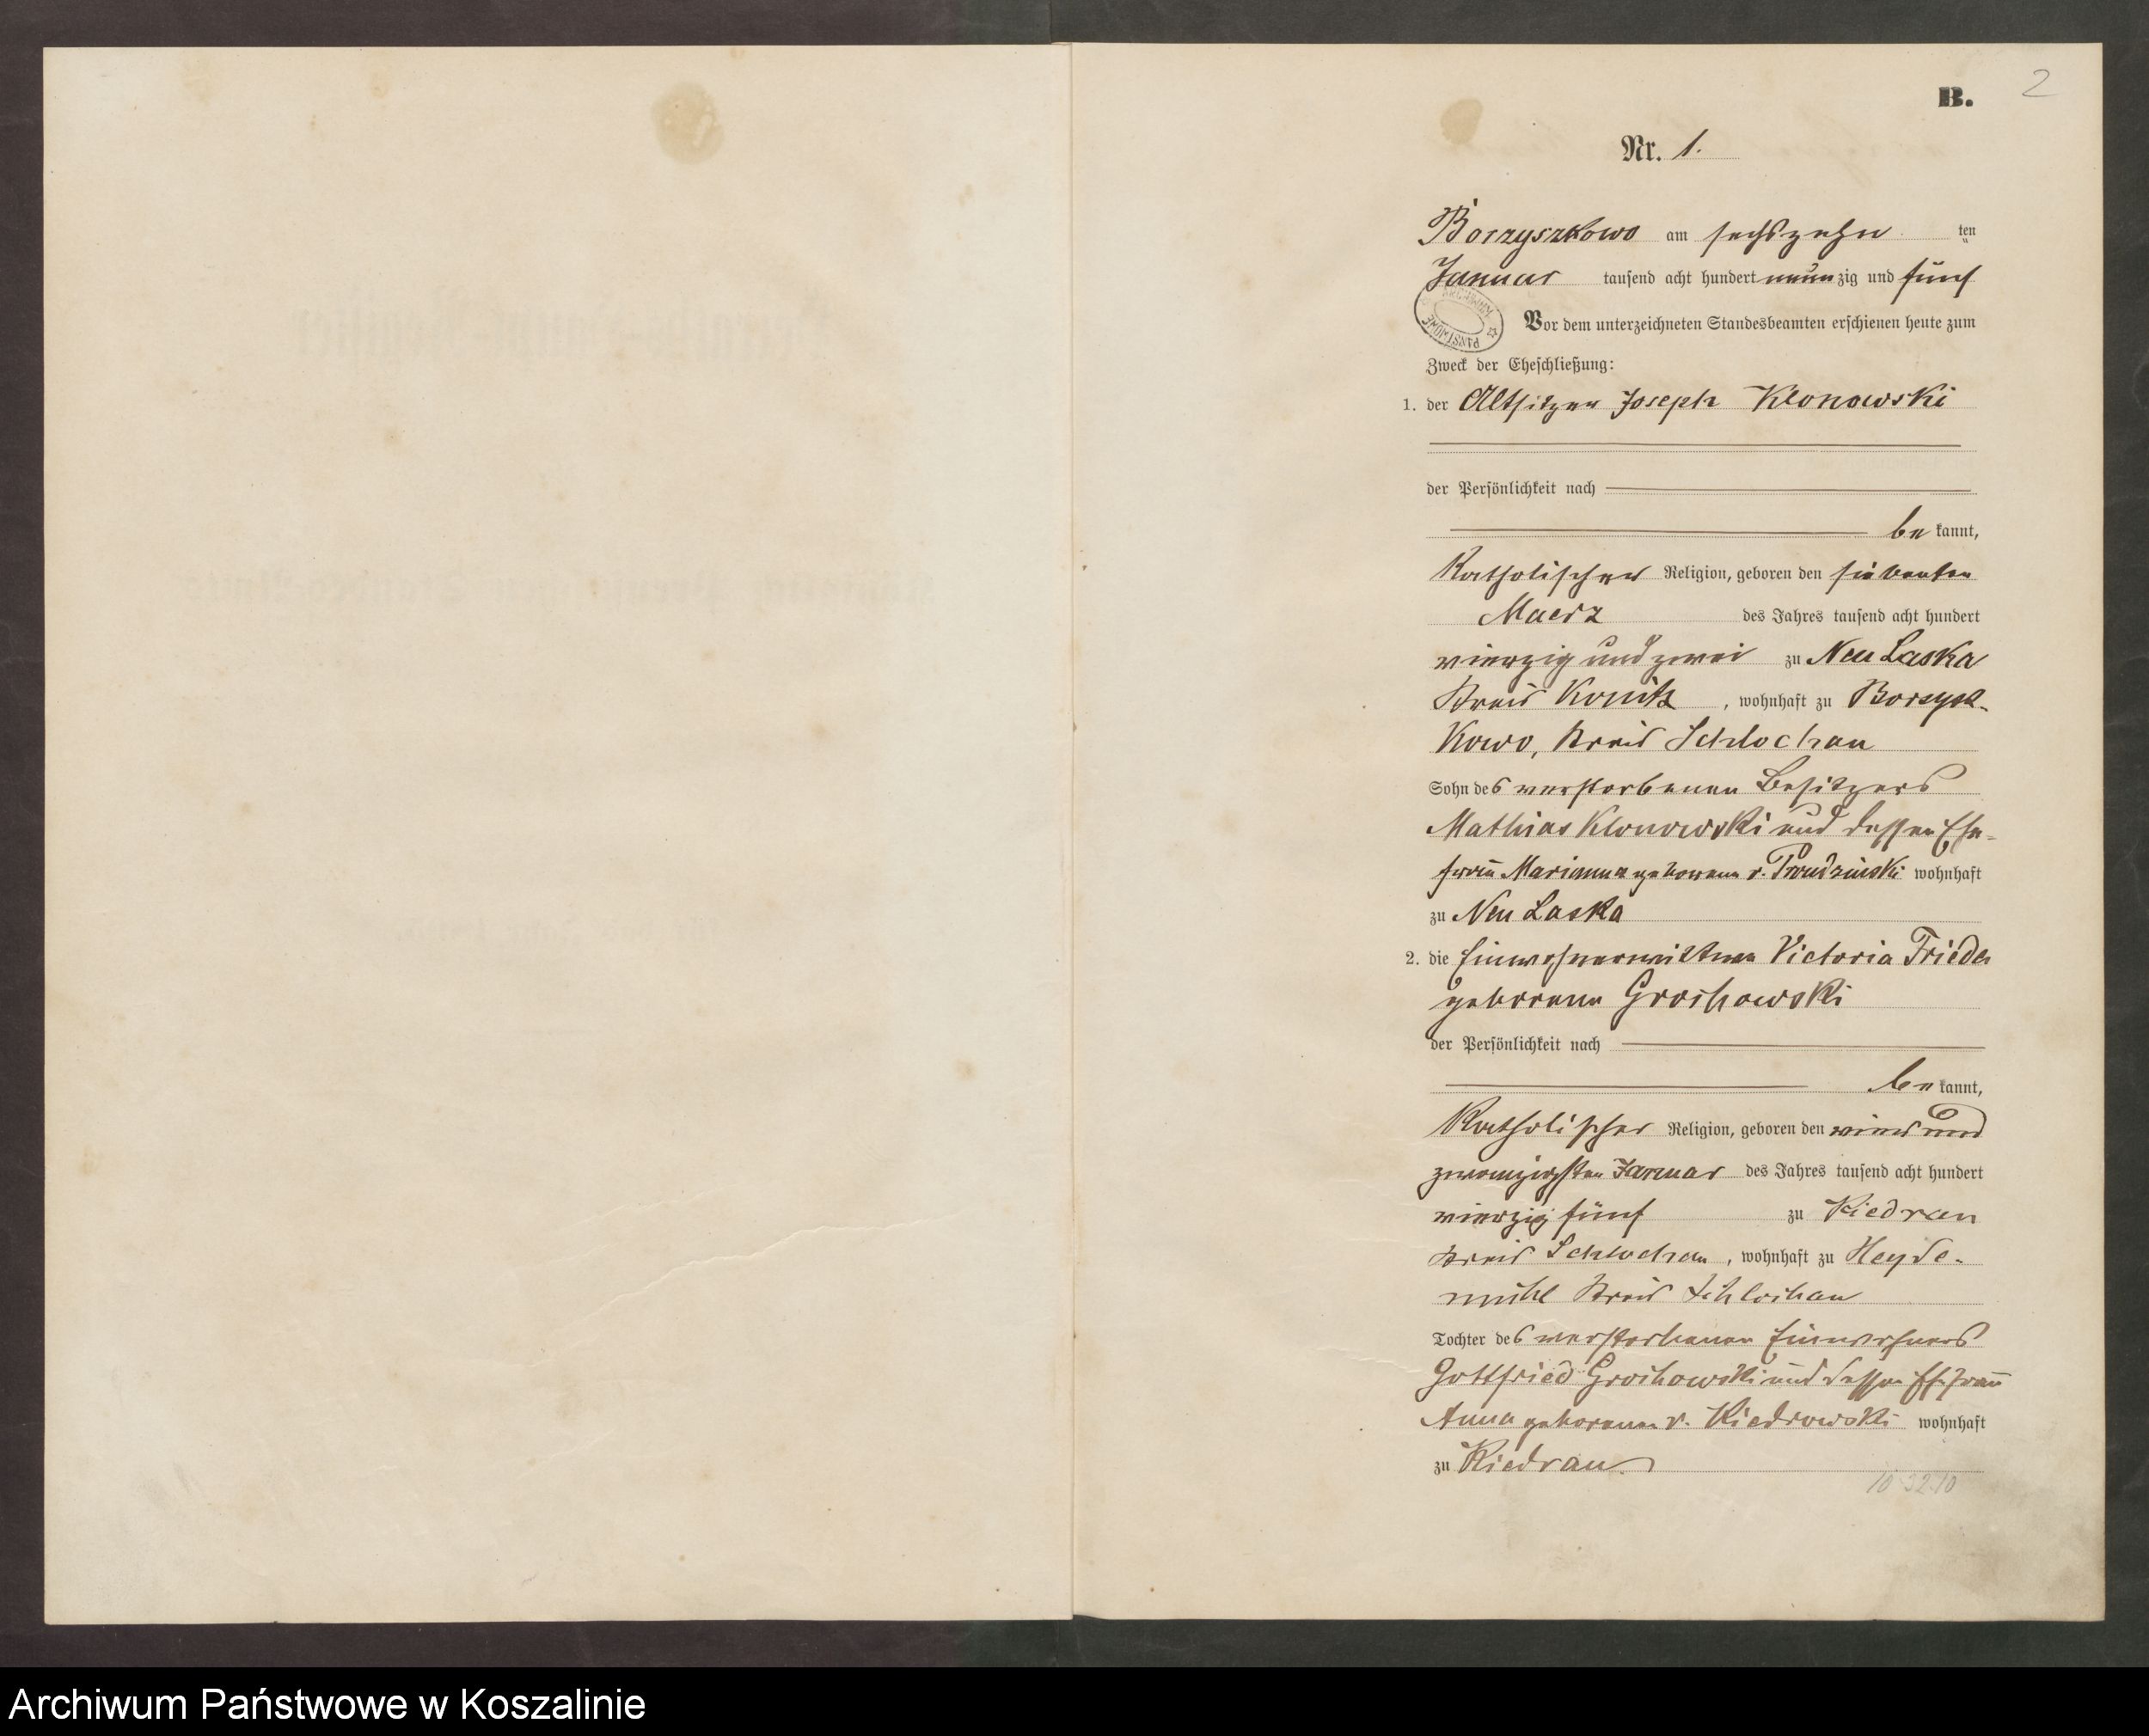 B.
2
Nr. 1.
Borzyszkowo am sechszehn ten
Januar tausend acht hundert neunzig und fünf
ARCHIWUM PAŃSTWOWE
Vor dem unterzeichneten Standesbeamten erschienen heute zum
Zweck der Eheschließung:
1. der Altsitzer Joseph Klonowski
der Persönlichkeit nach
be kannt,
Katholischer Religion, geboren den siebenten
Maerz des Jahres tausend acht hundert
vierzig und zwei zu Neu Laska
Kreis Konitz, wohnhaft zu Borzysz-
kowo, Kreis Schlochau
Sohn des verstorbenen Besitzers
Mathias Klonowski und dessen Ehe-
frau Marianna geborene v. Prondzinski wohnhaft
zu Neu Laska
2. die Einwohnerwittwe Victoria Frieda
geborene Grochowski
der Persönlichkeit nach
be kannt,
Katholischer Religion, geboren den vier und
zwanzigsten Januar des Jahres tausend acht hundert
vierzig fünf zu Kiedrau
Kreis Schlochau, wohnhaft zu Heyde-
mühl Kreis Schlochau
Tochter des verstorbenen Einwohners
Gottfried Grochowski und dessen Ehefrau
Anna geborenen v. Kiedrowski wohnhaft
zu Kiedrau
10 32 10
Archiwum Państwowe w Koszalinie